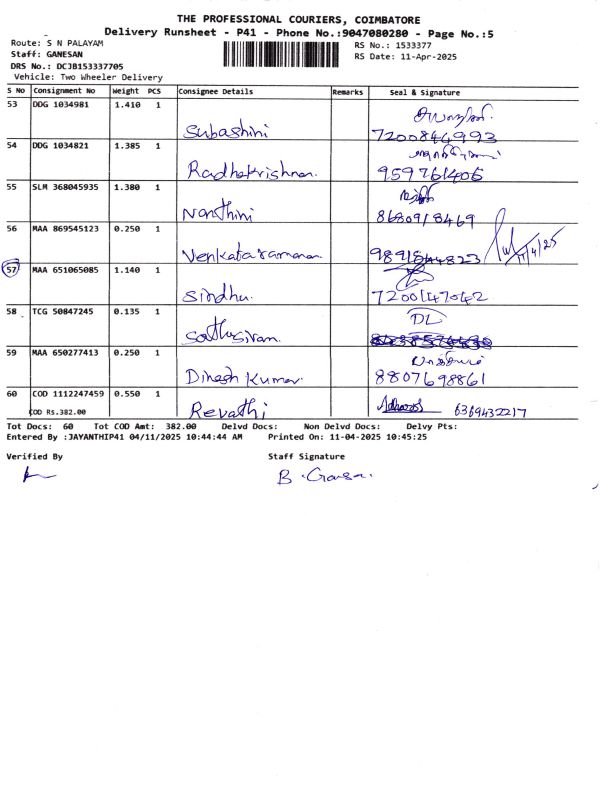 THE PROFESSIONAL COURIERS, COIMBATORE
Delivery Runsheet - P41 - Phone No.:9047080280 - Page No.:5
Route: S N PALAYAM
Staff: GANESAN
DRS No.: DCJB153337705
Vehicle: Two Wheeler Delivery
RS No.: 1533377
RS Date: 11-Apr-2025
S No Consignment No Weight PCS Consignee Details Remarks Seal & Signature
53 DDG 1034981 1.410 1
Subashini 7200844993
54 DDG 1034821 1.385 1
Radhakrishnan. 959761406
55 SLM 368045935 1.380 1
Nanthini 8680918469
56 MAA 869545123 0.250 1
Venkataramanan 11/4/25
57 MAA 651065085 1.140 1
Sindhu. 7200147042
58 TCG 50847245 0.135 1 DL
59 MAA 650277413 0.250 1
Dinesh Kumar 8807698861
60 COD 1112247459 0.550 1
COD Rs.382.00 Revathi 6369432217
Tot Docs: 60 Tot COD Amt: 382.00 Delvd Docs: Non Delvd Docs: Delvy Pts:
Entered By :JAYANTHIP41 04/11/2025 10:44:44 AM Printed On: 11-04-2025 10:45:25
Verified By Staff Signature